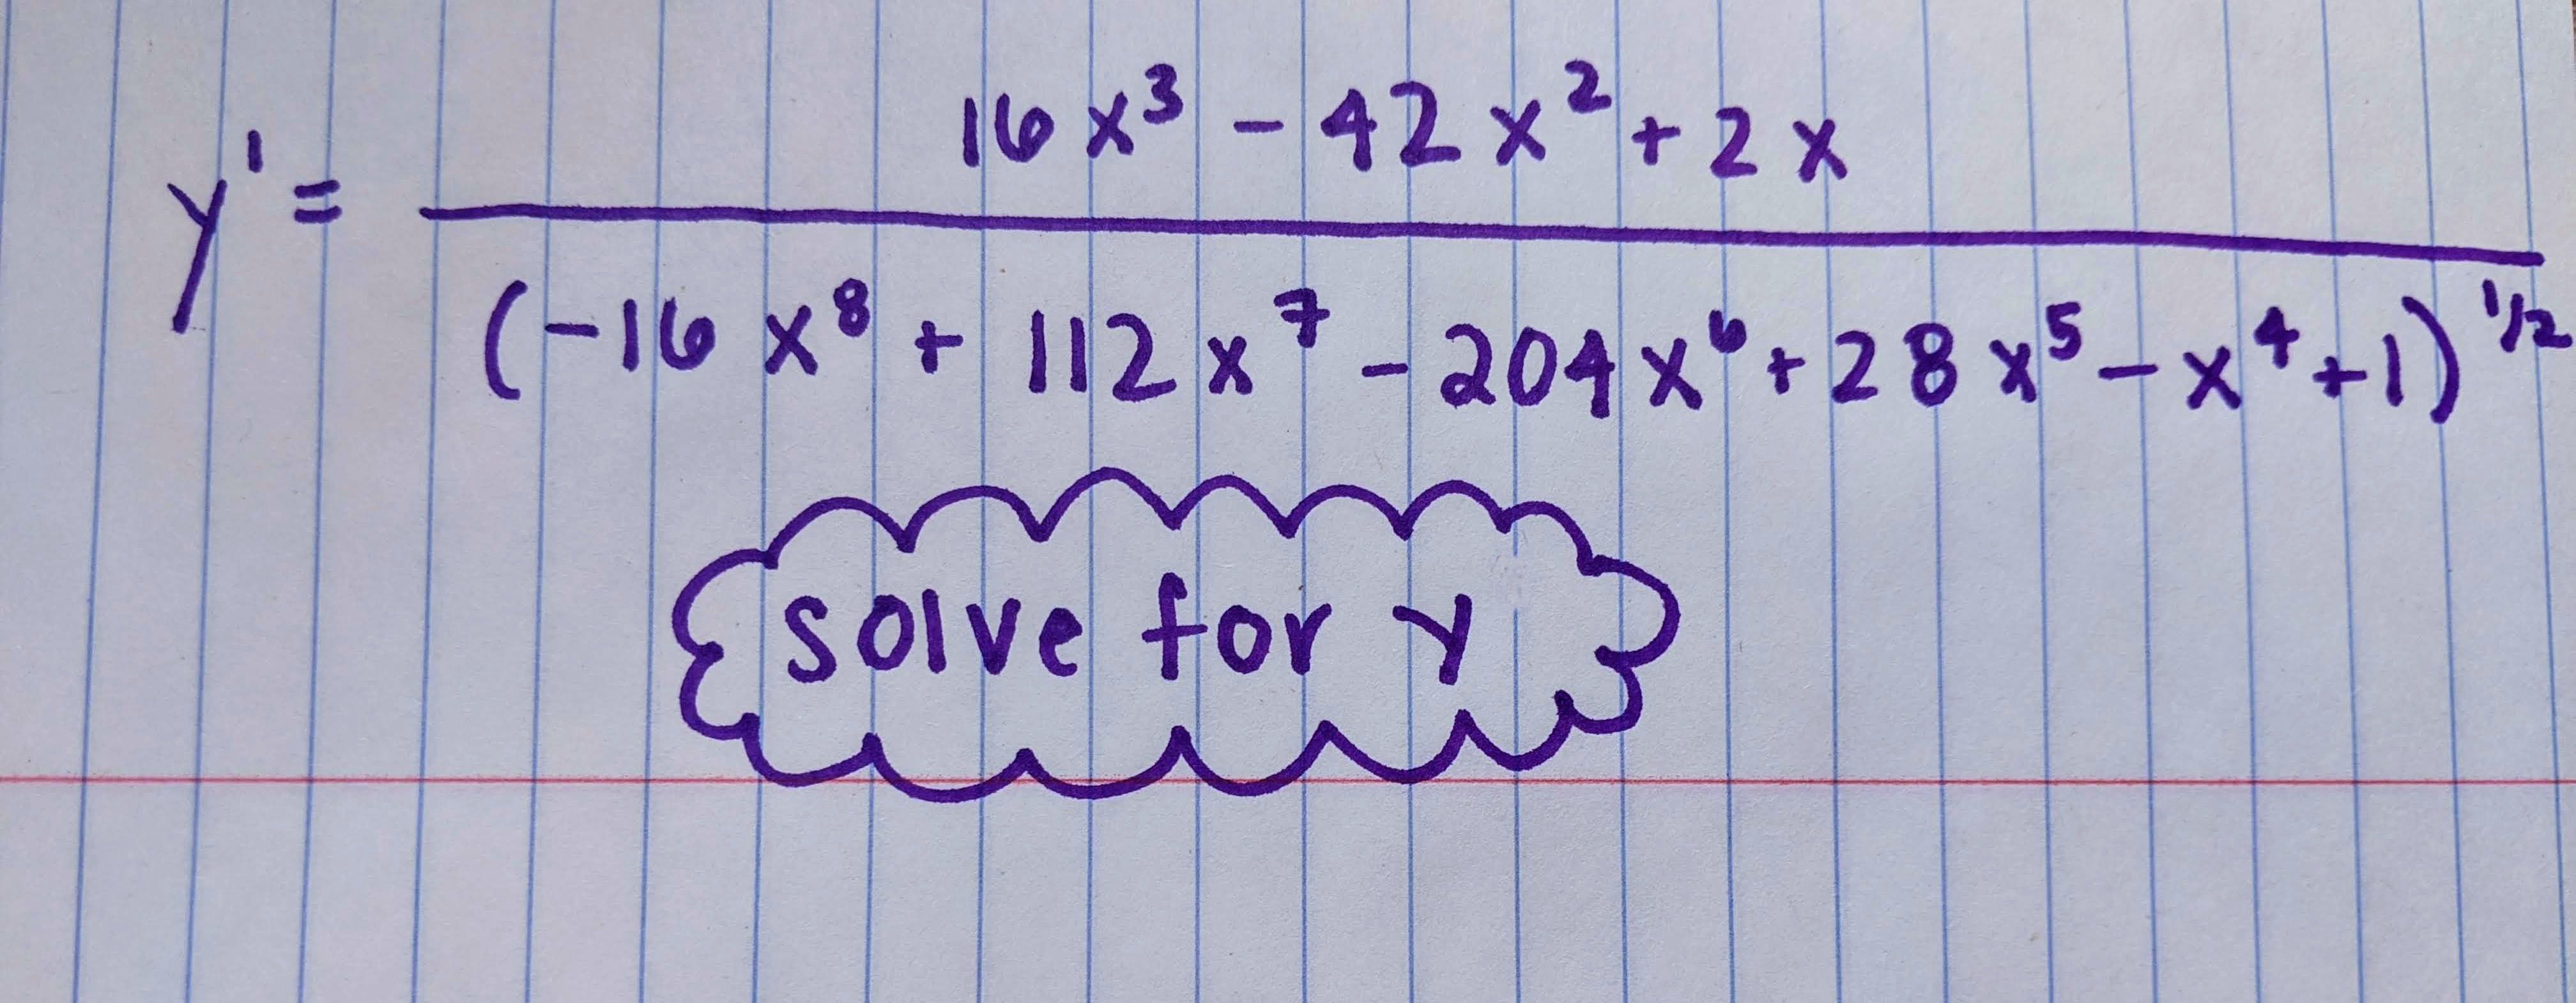 y' = 16x³ - 42x² + 2x
(-16x⁸ + 112x⁷ - 204x⁶ + 28x⁵ - x⁴ + 1)^1/2
solve for y